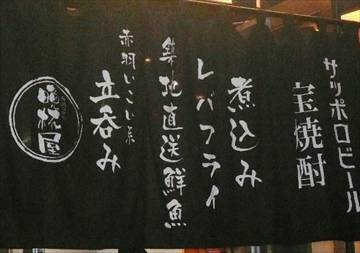 サッポロビール
宝焼酎
煮込み
レバフライ
築地直送鮮魚
赤羽いこい系
立呑み